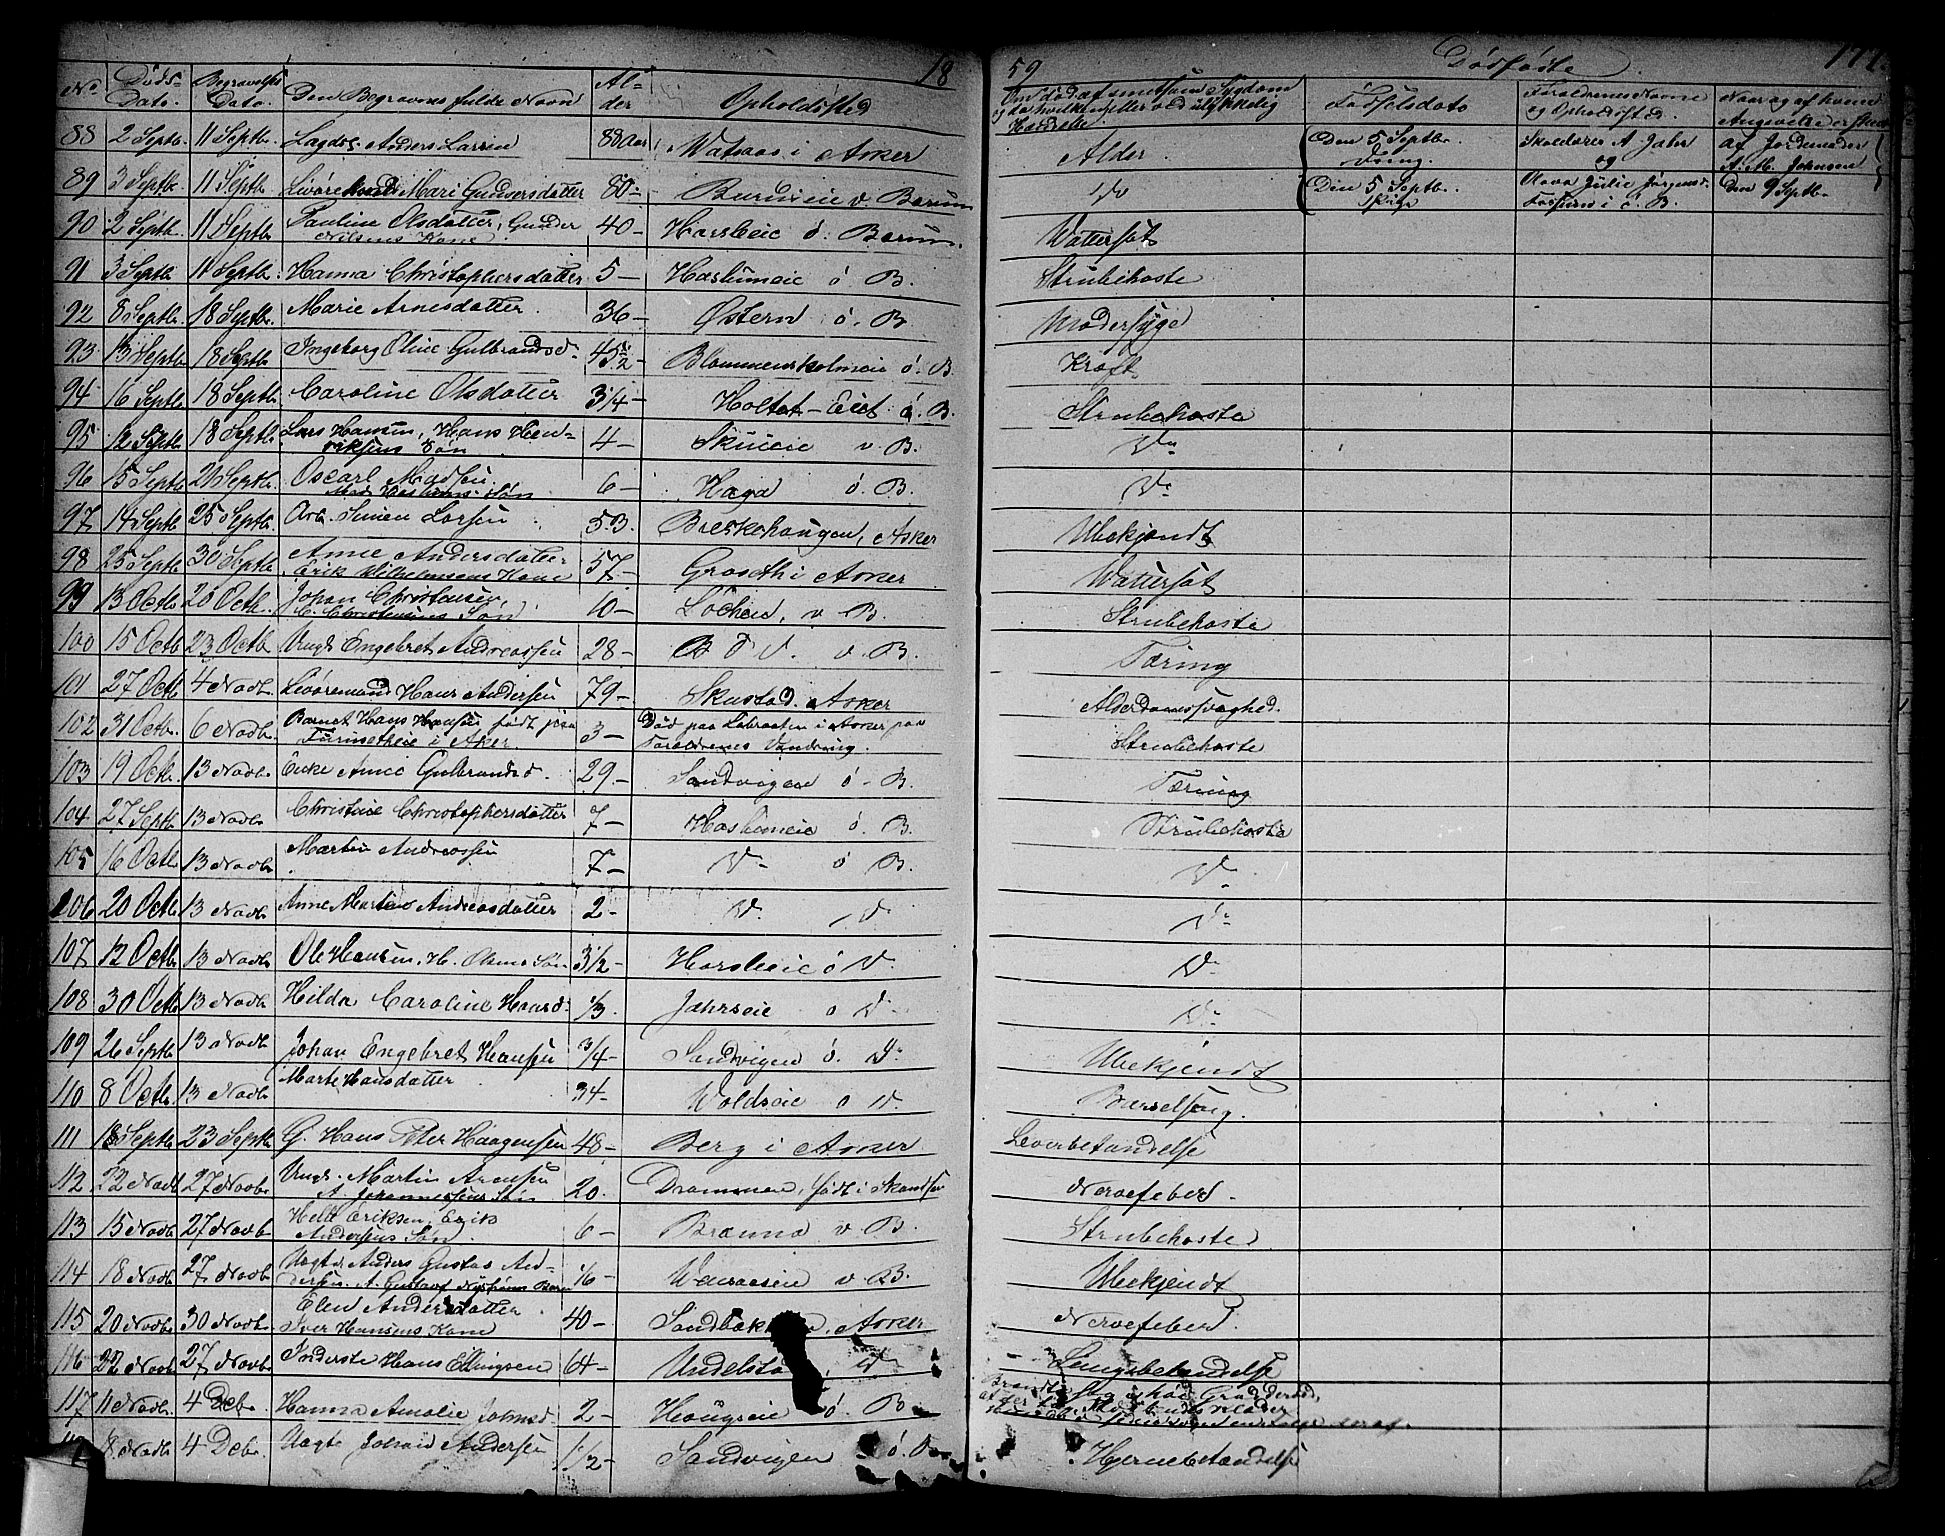 18
No Døds- Dato. Begravelses Dato. Den Begravnes fulde Navn Al- der Opholdssted
88 2 Septb. 11 Septb. Lægdsl. Anders Larsen 88 Aar Watsaas i Asker
89 3 Septb. 11 Septb. Mari Gundersdatter 80 - v. Bærum
90 2 Septb. 11 Septb. Pauline Olsdatter, Gunder
Nilsens Kone 40 - Harsleie ø. Bærum
91 3 Septb. 11 Septb. Hanna Christophersdatter 5 - Haslumeie ø B.
92 8 Septb. 18 Septb. Marie Arnesdatter 36 - Østern ø. B.
93 13 Septb. 18 Septb. Ingeborg Oline Gulbrandsd. 45 1/2 - Blommenholmeie ø. B.
94 16 Septb. 18 Septb. Caroline Olsdatter 3/4 - Holtet-Eiet ø. B.
95 12 Septb. 18 Septb. Lars Hansen, Hans Hen-
riksens Søn 4 - Skuieie v. B.
96 15 Septb. 21 Septb. Oscarl Madsen
Søn 6 - Haga ø. B.
97 14 Septb. 25 Septb. Arb. Simen Larsen 53. Breskehaugen, Asker
98 25 Septb. 30 Septb. Anne Andersdatter
Erik Wilhelmsens Kone 57 - i Asker
99 13 Octb. 20 Octb. Johan Christensen,
C. Christensens Søn 10 - Løkeie, v B.
100 15 Octb. 23 Octb. Ungk. Engebret Andreassen 28 - v. B.
101 27 Octb. 4 Novb. Hans Andersen 79 - Skustad. Asker
102 31 Octb. 6 Novb. Barnet Hans Hansen født paa
i Asker. 3 - Død paa i Asker paa
Forældrenes Vandring.
103 19 Octb. 13 Novb. Enke Anne Gulbrandsd. 29 - Sandvigen ø. B.
104 27 Septb. 13 Novb. Christine Christophersdatter 7 - Haslumeie ø. B.
105 16 Octb. 13 Novb. Martin Andreassen 7 - D- ø B.
106 20 Octb. 13 Novb. Anne Martine Andreasdatter 2 - D. D-
107 12 Octb. 13 Novb. Ole Hansen, H. Olsens Søn 3 1/2 - Harsleie ø D.
108 30 Octb. 13 Novb. Hilda Caroline Hansd. 1/3 Jahrseie ø D-
109 26 Septb. 13 Novb. Johan Engebret Hansen 3/4 - Sandvigen ø. D-
110 8 Octb. 13 Novb. Marte Hansdatter 34 - Woldseie ø D.
111 18 Septb. 23 Septb. G. Hans Peter Haagensen 48 - Berg i Asker
112 22 Novb. 27 Novb. Ungk. Martin Arensen
A. Johannessens Søn 20. Drammen, født i
113 15 Novb. 27 Novb. Eriksen, Erik
Andersens Søn. 6 - Brænna v B.
114 18 Novb. 27 Novb. Uægte Anders Gustav An-
dersen. A. Gustaf Barn 1/6 - v. B.
115 20 Novb. 30 Novb. Elen Andersdatter
Iver Hansens Kone 40 - Asker
116 22 Novb. 27 Novb. Inderste Hans Ellingsen 64 - D-
117 11 Novb. 4 Deb. Hanna Amalie Johnsd 2 - Haugseie ø. B.
8 Novb. 4 Decb. Uægte Johan Andersen 1 1/2 - Sandvigen ø.
59 Dødfødte 177
Om død af smitsom Sygdom
og da hvilken, eller ved ulykkelig
Hændelse Fødselsdato Forældrenes Navne
og Opholdssted. Naar og af hvem
Angivelse er skeet
Alder. Den 5 Septb.
Dreng. Skolelærer A Jahr
og af Jordemoder
A. M. Johnsen
D Den 5 Septb.
Pige Julie Jørgensd.
i ø. B. Den 9 Septb.
Wattersot
Strubehoste
Modersyge
Kræft
Strubehoste
Do
D-
Ubekjendt
Wattersot
Strubehoste
Tæring
Alderdomssvaghed.
Strubehoste
Tæring
Strubehoste
D-
D-
D-
D-
Ubekjendt
Barselseng.
Leverbetændelse
Nervefeber.
Strubehoste.
Ubekjendt
Nervefeber.
Lungebetændelse
Hjernebetændelse